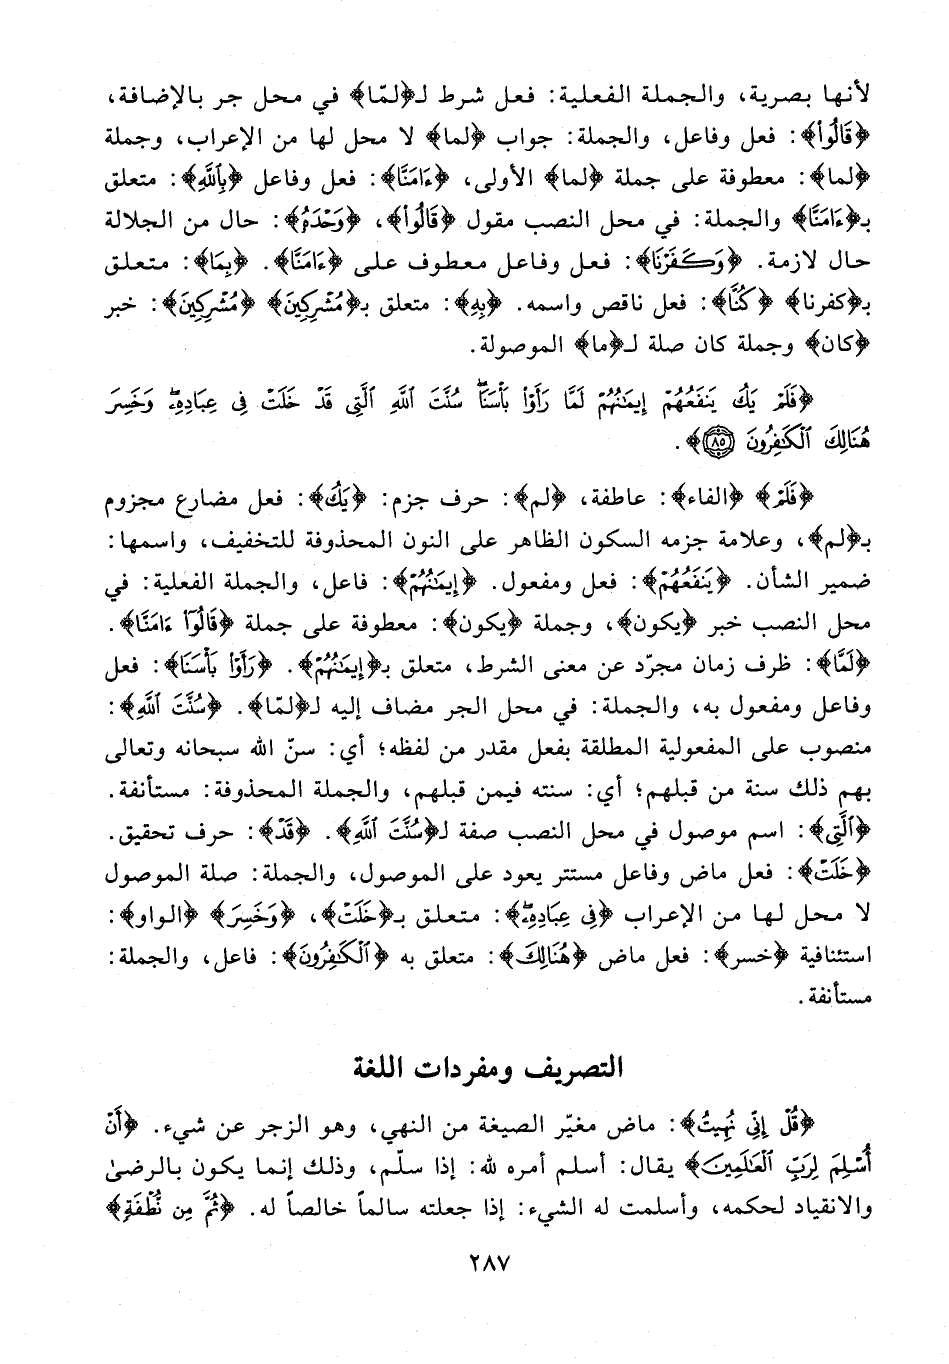 لأنها بصرية، والجملة الفعلية: فعل شرط لـ﴿لمّا﴾ في محل جر بالإضافة،
﴿قَالُوٓا۟﴾: فعل وفاعل، والجملة: جواب ﴿لما﴾ لا محل لها من الإعراب، وجملة
﴿لما﴾: معطوفة على جملة ﴿لما﴾ الأولى، ﴿ءَامَنَّا﴾: فعل وفاعل ﴿بِٱللَّهِ﴾: متعلق
بـ﴿ءَامَنَّا﴾ والجملة: في محل النصب مقول ﴿قَالُوٓا۟﴾، ﴿وَحْدَهُۥ﴾: حال من الجلالة
حال لازمة. ﴿وَكَفَرْنَا﴾: فعل وفاعل معطوف على ﴿ءَامَنَّا﴾. ﴿بِمَا﴾: متعلق
بـ﴿كفرنا﴾ ﴿كُنَّا﴾: فعل ناقص واسمه. ﴿بِهِۦ﴾: متعلق بـ﴿مُشْرِكِينَ﴾ ﴿مُشْرِكِينَ﴾: خبر
﴿كان﴾ وجملة كان صلة لـ﴿ما﴾ الموصولة.
﴿فَلَمْ يَكُ يَنفَعُهُمْ إِيمَٰنُهُمْ لَمَّا رَأَوْا۟ بَأْسَنَا ۖ سُنَّتَ ٱللَّهِ ٱلَّتِى قَدْ خَلَتْ فِى عِبَادِهِۦ ۖ وَخَسِرَ
هُنَالِكَ ٱلْكَٰفِرُونَ ۝٨٥﴾.
﴿فَلَمْ﴾ ﴿الفاء﴾: عاطفة، ﴿لم﴾: حرف جزم: ﴿يَكُ﴾: فعل مضارع مجزوم
بـ﴿لم﴾، وعلامة جزمه السكون الظاهر على النون المحذوفة للتخفيف، واسمها:
ضمير الشأن. ﴿يَنفَعُهُمْ﴾: فعل ومفعول. ﴿إِيمَٰنُهُمْ﴾: فاعل، والجملة الفعلية: في
محل النصب خبر ﴿يكون﴾، وجملة ﴿يكون﴾: معطوفة على جملة ﴿قَالُوٓا۟ ءَامَنَّا﴾.
﴿لَمَّا﴾: ظرف زمان مجرّد عن معنى الشرط، متعلق بـ﴿إِيمَٰنُهُمْ﴾. ﴿رَأَوْا۟ بَأْسَنَا﴾: فعل
وفاعل ومفعول به، والجملة: في محل الجر مضاف إليه لـ﴿لمّا﴾. ﴿سُنَّتَ ٱللَّهِ﴾:
منصوب على المفعولية المطلقة بفعل مقدر من لفظه؛ أي: سنّ الله سبحانه وتعالى
بهم ذلك سنة من قبلهم؛ أي: سنته فيمن قبلهم، والجملة المحذوفة: مستأنفة.
﴿ٱلَّتِى﴾: اسم موصول في محل النصب صفة لـ﴿سُنَّتَ ٱللَّهِ﴾. ﴿قَدْ﴾: حرف تحقيق.
﴿خَلَتْ﴾: فعل ماض وفاعل مستتر يعود على الموصول، والجملة: صلة الموصول
لا محل لها من الإعراب ﴿فِى عِبَادِهِۦ ۖ﴾: متعلق بـ﴿خَلَتْ﴾، ﴿وَخَسِرَ﴾ ﴿الواو﴾:
استئنافية ﴿خسر﴾: فعل ماض ﴿هُنَالِكَ﴾: متعلق به ﴿ٱلْكَٰفِرُونَ﴾: فاعل، والجملة:
مستأنفة.
التصريف ومفردات اللغة
﴿قُلْ إِنِّى نُهِيتُ﴾: ماض مغيّر الصيغة من النهي، وهو الزجر عن شيء. ﴿أَنْ
أُسْلِمَ لِرَبِّ ٱلْعَٰلَمِينَ﴾ يقال: أسلم أمره لله: إذا سلّم، وذلك إنما يكون بالرضىٰ
والانقياد لحكمه، وأسلمت له الشيء: إذا جعلته سالماً خالصاً له. ﴿ثُمَّ مِن نُّطْفَةٍ﴾
٢٨٧